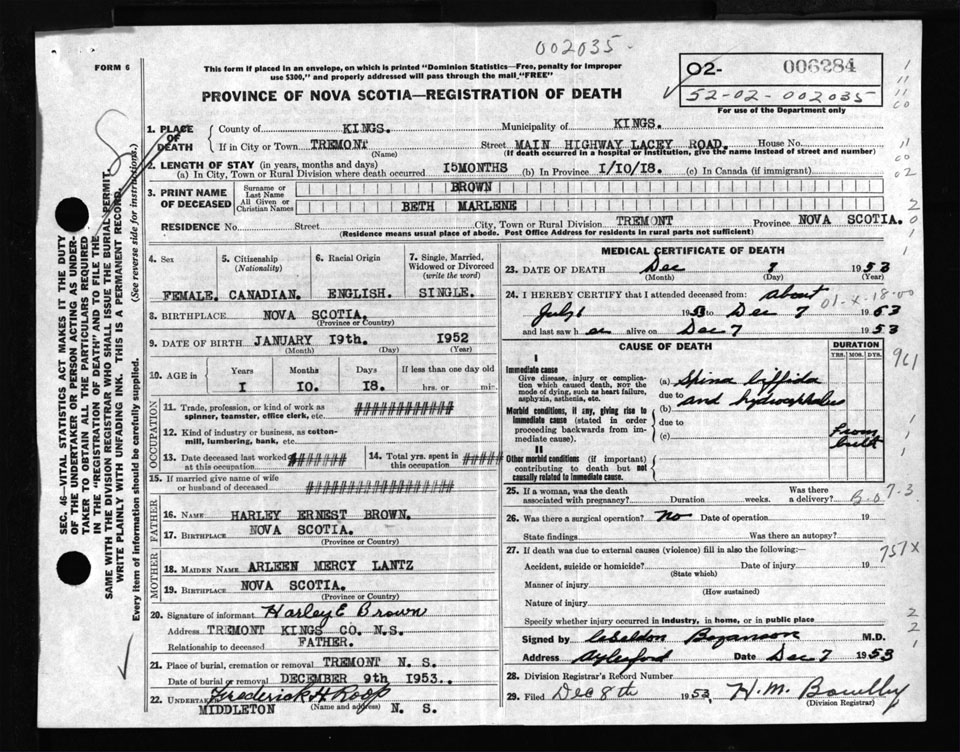 002035.
FORM 6
This form if placed in an envelope, on which is printed "Dominion Statistics—Free, penalty for improper
use $300," and properly addressed will pass through the mail "FREE"
PROVINCE OF NOVA SCOTIA—REGISTRATION OF DEATH
O2- 006284
52-02-002035
For use of the Department only
1. PLACE OF DEATH
County of KINGS. Municipality of KINGS.
If in City or Town TREMONT Street MAIN HIGHWAY LACEY ROAD. House No.
(Name) (If death occurred in a hospital or institution, give the name instead of street and number)
2. LENGTH OF STAY (in years, months and days)
(a) In City, Town or Rural Division where death occurred 15MONTHS (b) In Province 1/10/18. (c) In Canada (if immigrant)
3. PRINT NAME OF DECEASED
Surname or Last Name BROWN
All Given or Christian Names BETH MARLENE
RESIDENCE No. Street City, Town or Rural Division TREMONT Province NOVA SCOTIA.
(Residence means usual place of abode. Post Office Address for residents in rural parts not sufficient)
4. Sex 5. Citizenship (Nationality) 6. Racial Origin 7. Single, Married, Widowed or Divorced (write the word)
FEMALE. CANADIAN. ENGLISH. SINGLE.
8. BIRTHPLACE NOVA SCOTIA.
(Province or Country)
9. DATE OF BIRTH JANUARY 19th. 1952
(Month) (Day) (Year)
10. AGE in Years Months Days If less than one day old
I 10. 18. hrs. or min.
OCCUPATION
11. Trade, profession, or kind of work as spinner, teamster, office clerk, etc. ############
12. Kind of industry or business, as cotton-mill, lumbering, bank, etc.
13. Date deceased last worked at this occupation #######
14. Total yrs. spent in this occupation #####
15. If married give name of wife or husband of deceased ##################
FATHER
16. NAME HARLEY ERNEST BROWN.
17. BIRTHPLACE NOVA SCOTIA.
(Province or Country)
MOTHER
18. MAIDEN NAME ARLEEN MERCY LANTZ
19. BIRTHPLACE NOVA SCOTIA.
(Province or Country)
20. Signature of informant Harley E Brown
Address TREMONT KINGS CO. N.S.
Relationship to deceased FATHER.
21. Place of burial, cremation or removal TREMONT N. S.
Date of burial or removal DECEMBER 9th 1953.
22. Undertaker Frederick H Roop
MIDDLETON N. S.
(Name and address)
MEDICAL CERTIFICATE OF DEATH
23. DATE OF DEATH Dec 7 1953
(Month) (Day) (Year)
24. I HEREBY CERTIFY that I attended deceased from: about
July 1953 to Dec 7 1953
01-X-18-00
and last saw h er alive on Dec 7 1953
CAUSE OF DEATH DURATION
YRS. MOS. DYS.
961
I
Immediate cause
Give disease, injury or complication which caused death, NOT the mode of dying, such as heart failure, asphyxia, asthenia, etc.
(a) Spina biffida
due to and hydrocephalus
Morbid conditions, if any, giving rise to immediate cause (stated in order proceeding backwards from immediate cause).
(b)
due to
(c) From
II
Other morbid conditions (if important) contributing to death but not causally related to immediate cause.
25. If a woman, was the death associated with pregnancy? Duration weeks. Was there a delivery?
26. Was there a surgical operation? no Date of operation 19
State findings Was there an autopsy?
27. If death was due to external causes (violence) fill in also the following:—
757X
Accident, suicide or homicide? Date of injury 19
(State which)
Manner of injury
(How sustained)
Nature of injury
Specify whether injury occurred in industry, in home, or in public place
Signed by Bezanson M.D.
Address Aylesford Date Dec 7 1953
28. Division Registrar's Record Number
29. Filed Dec 8th 1953 H. M. Bowlby
(Division Registrar)
SEC. 46—VITAL STATISTICS ACT MAKES IT THE DUTY
OF THE UNDERTAKER OR PERSON ACTING AS UNDER-
TAKER TO OBTAIN ALL THE PARTICULARS REQUIRED
IN THE "REGISTRATION OF DEATH" AND TO FILE THE
SAME WITH THE DIVISION REGISTRAR WHO SHALL ISSUE THE BURIAL PERMIT.
WRITE PLAINLY WITH UNFADING INK. THIS IS A PERMANENT RECORD.
Every item of information should be carefully supplied. (See reverse side for instructions.)